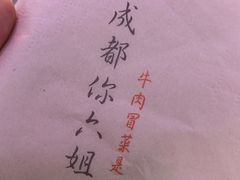 成都你六姐
牛肉冒菜是